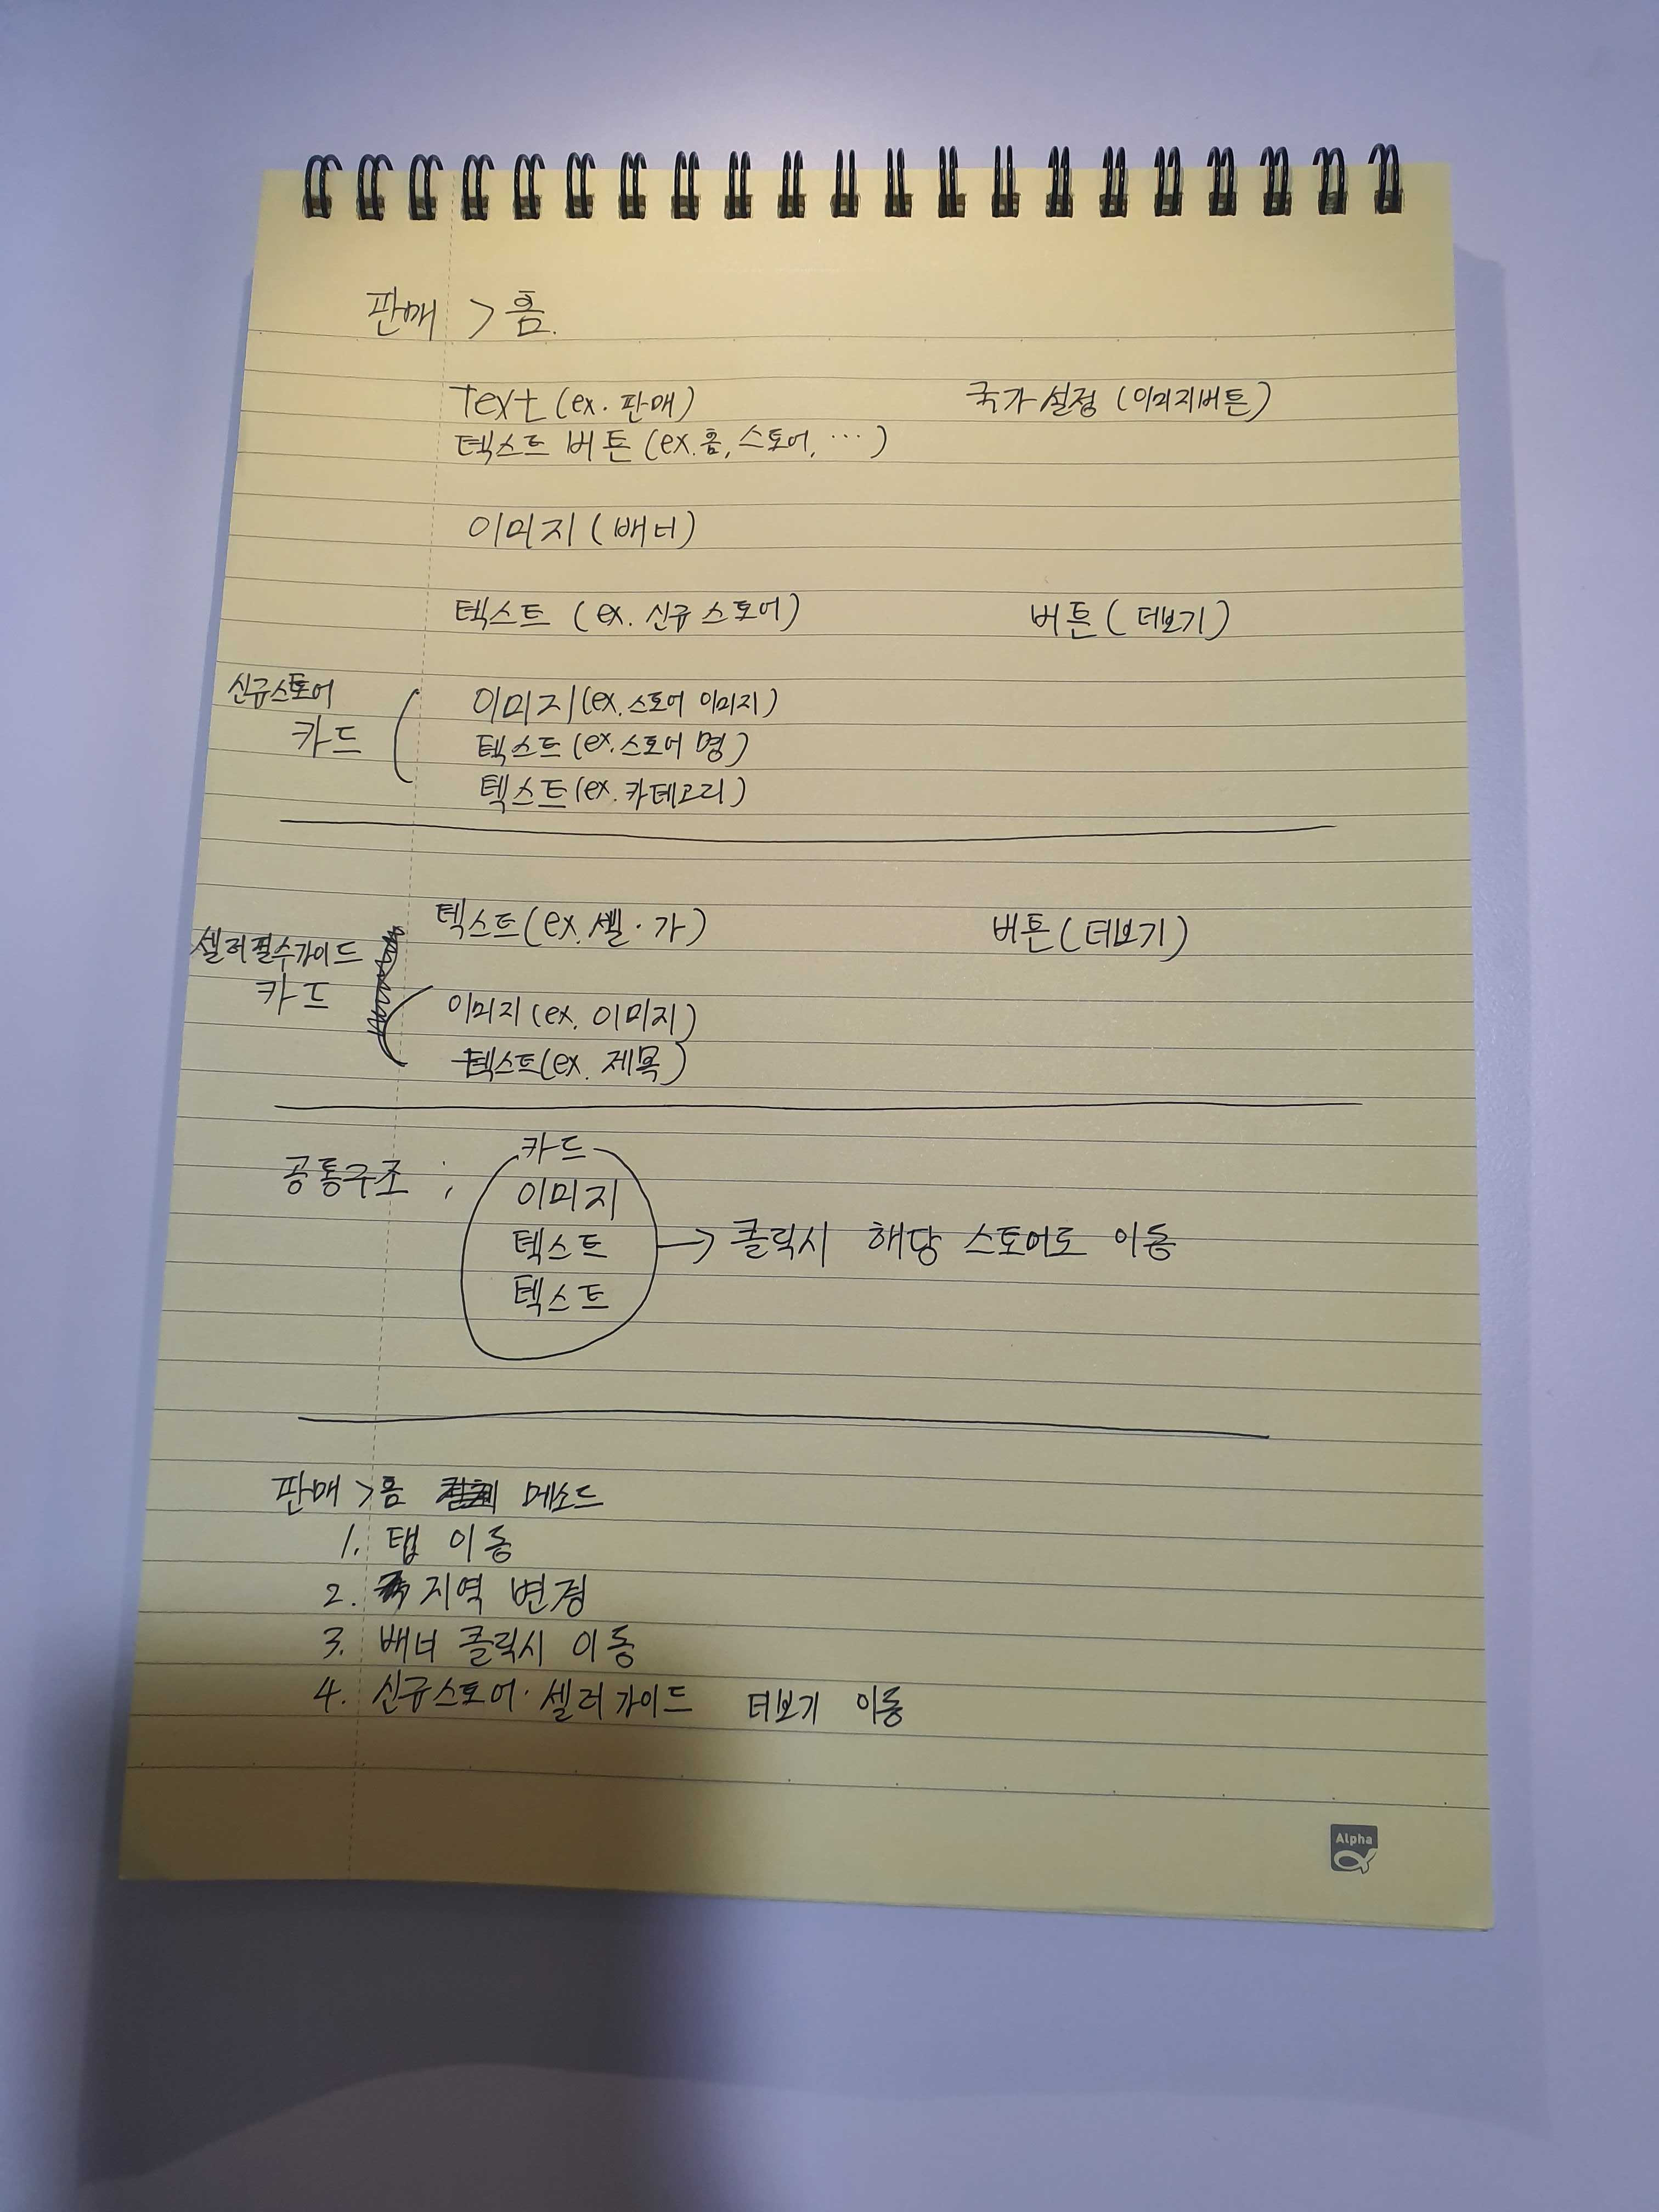 판매 > 홈.
Text (ex. 판매) 국가설정 (이미지버튼)
텍스트 버튼 (ex. 홈, 스토어, ...)
이미지 (배너)
텍스트 (ex. 신규스토어) 버튼 (더보기)
신규스토어
카드
이미지 (ex. 스토어 이미지)
텍스트 (ex. 스토어 명)
텍스트 (ex. 카테고리)
텍스트 (ex. 셀·가) 버튼 (더보기)
셀러필수가이드
카드
이미지 (ex. 이미지)
텍스트 (ex. 제목)
공통구조 ;
카드
이미지
텍스트 → 클릭시 해당 스토어로 이동
텍스트
판매 > 홈 메소드
1. 탭 이동
2. 지역 변경
3. 배너 클릭시 이동
4. 신규스토어· 셀러가이드 더보기 이동
Alpha